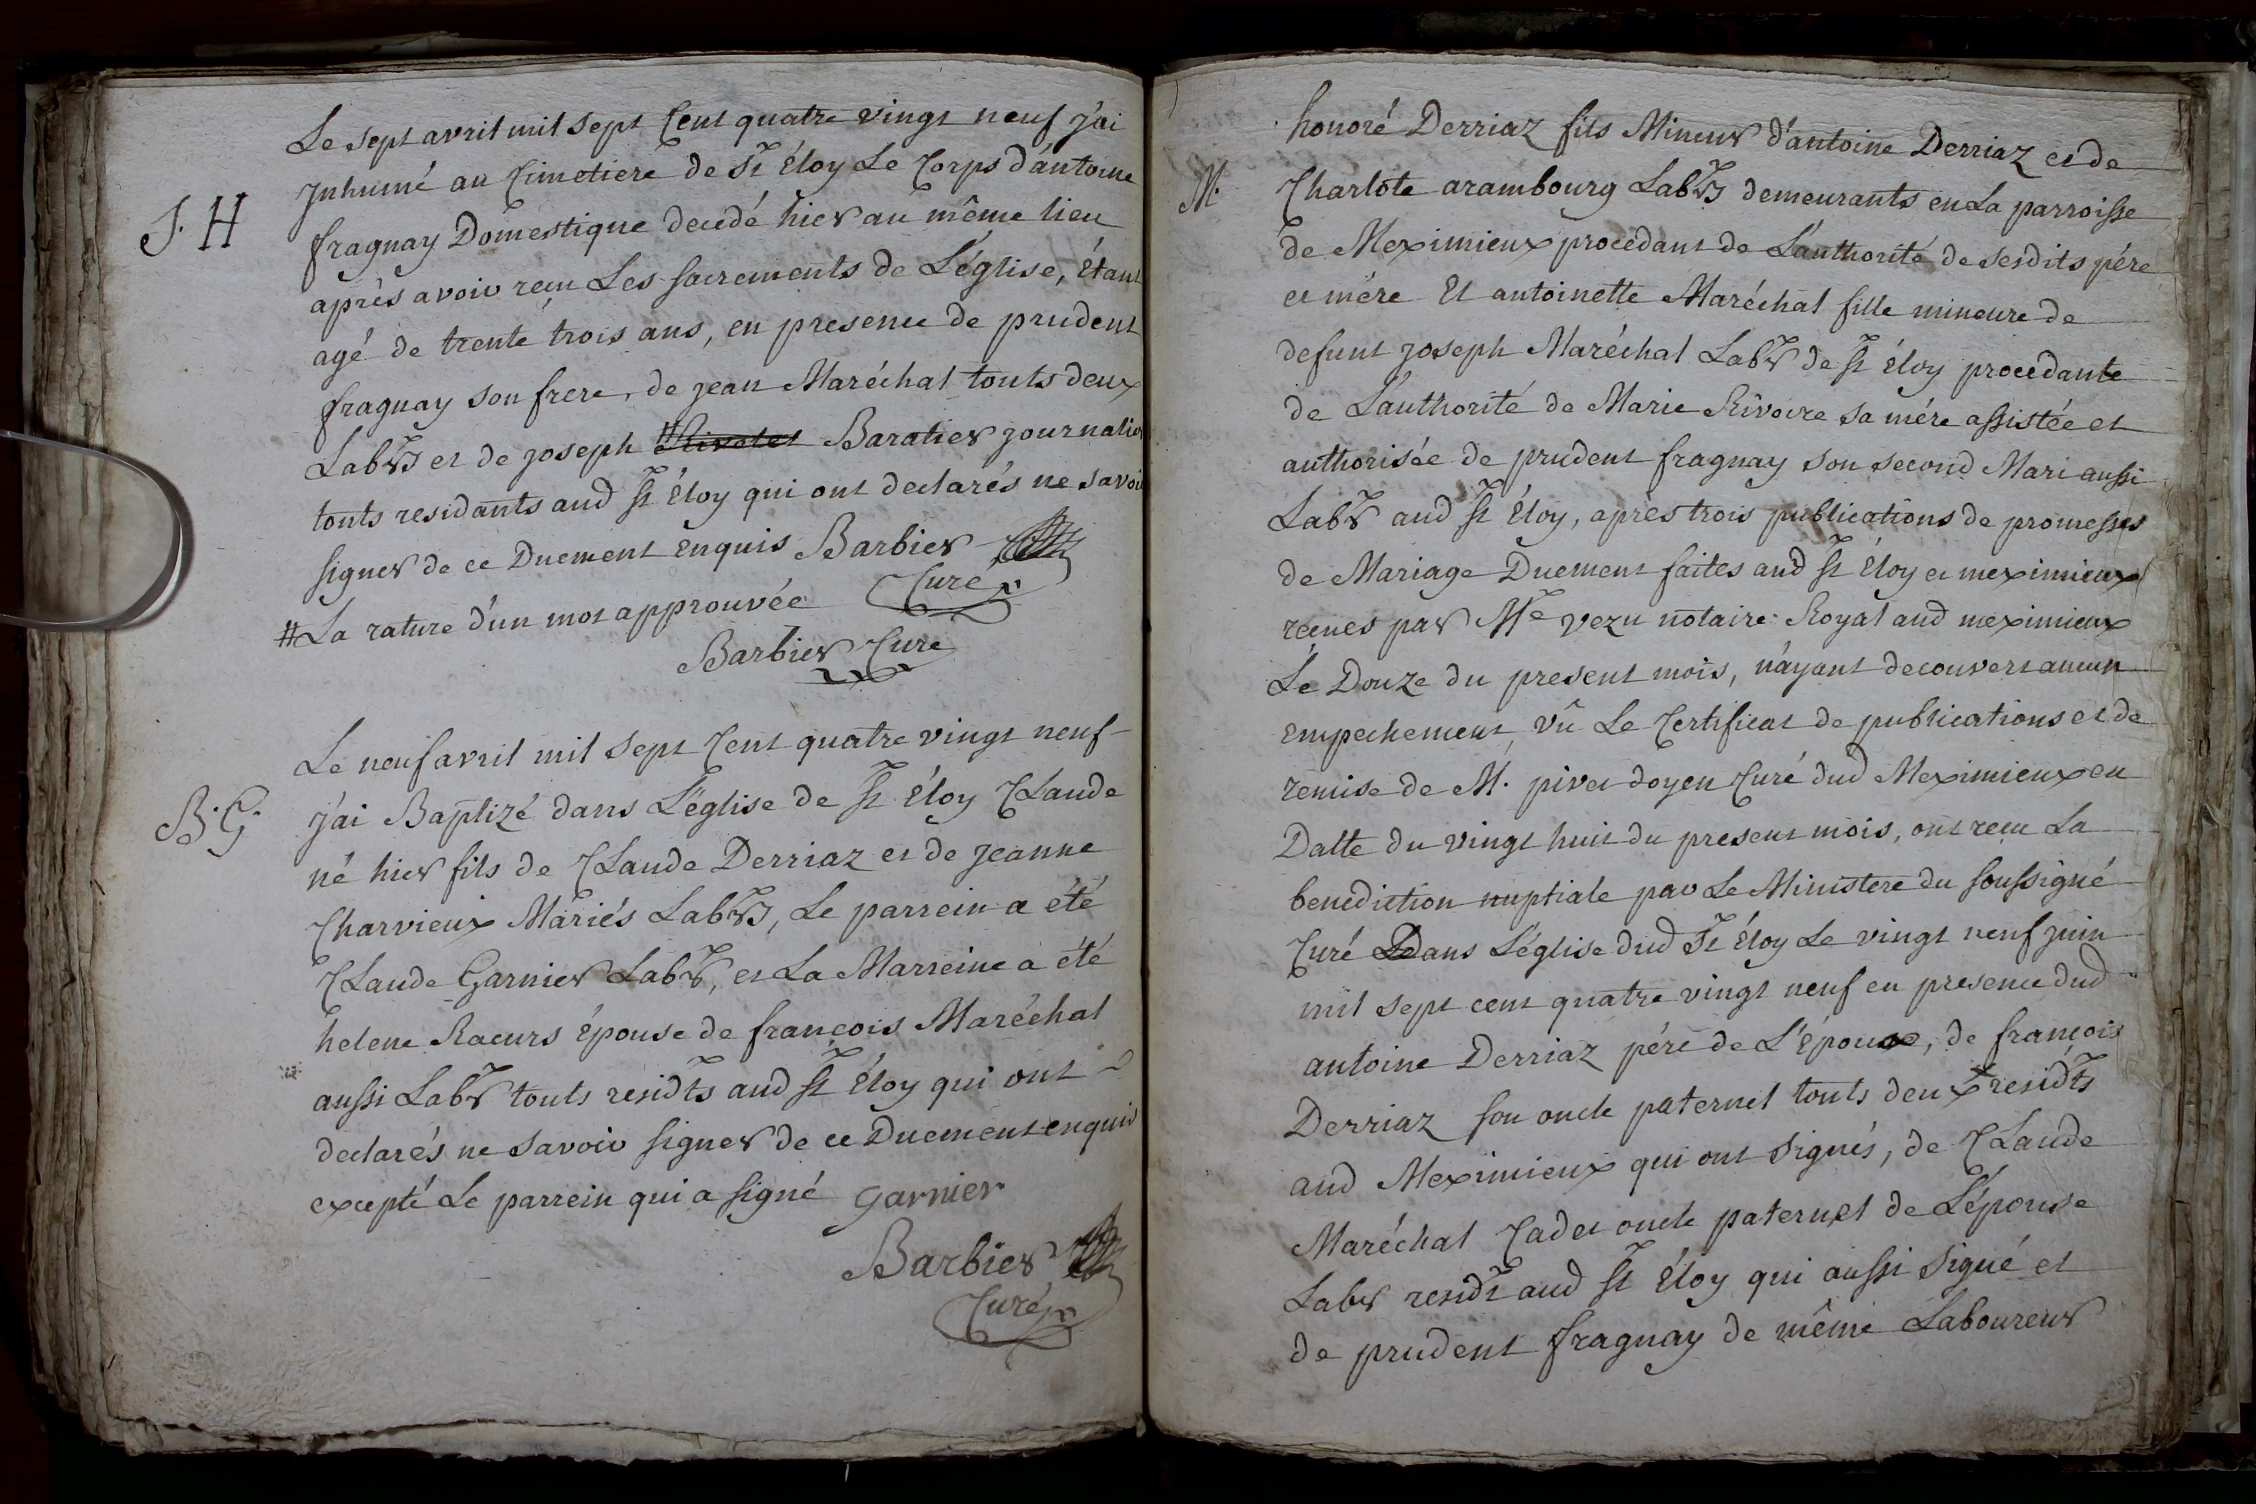 Le sept avril mil sept Cent quatre vingt neuf j'ai
Inhumé au Cimetiere de St Éloy Le Corps d'antoine
J. H
fragnay Domestique decedé hier au même lieu
après avoir reçu Les sacrements de L'église, Étant
agé de trente trois ans, en presence de prudent
fragnay son frere, de jean Maréchal touts deux
Labrs et de joseph # Rivolet Baratier journalier
touts residants aud St Éloy qui ont declarés ne savoir
signer de ce Duement enquis Barbier
Curé
# La rature d'un mot approuvée
Barbier Cure
Le neuf avril mil sept Cent quatre vingt neuf
B. G.
j'ai Baptizé dans L'église de St Éloy CLaude
né hier fils de CLaude Derriaz et de jeanne
Charvieux Mariés Labrs, Le parrein a été
CLaude Garnier Labr, et La Marreine a été
helene Racurs épouse de françois Maréchal
aussi Labr touts residts aud St Éloy qui ont
declarés ne savoir signer de ce Duement enquis
excepté Le parrein qui a signé Garnier
Barbier
Curé
honoré Derriaz fils Mineur d'antoine Derriaz et de
M.
Charlote arambourg Labrs demeurants en La parroisse
de Meximieux procedant de L'authorité de sesdits pére
et mére Et antoinette Maréchal fille mineure de
defunt joseph Maréchal Labr de St Éloy procedante
de L'authorité de Marie Rivoire sa mére assistée et
authorisée de prudent fragnay son second Mari aussi
Labr aud St Éloy, après trois publications de promesses
de Mariage Duement faites aud St Éloy et meximieux
reçues par Me vezu notaire Royal aud meximieux
Le Douze du present mois, n'ayant decouvert aucun
empechement, vû Le Certificat de publications et de
remise de M. pivet doyen Curé dud Meximieux en
Datte du vingt huit du present mois, ont reçu La
benediction nuptiale par Le Ministere du soussigné
Curé Dans L'église dud St Éloy Le vingt neuf juin
mil sept cent quatre vingt neuf en presence dud
antoine Derriaz pére de L'Époux, de françois
Derriaz son oncle paternel touts deux residts
aud Meximieux qui ont signés, de CLaude
Maréchal Cadet oncle paternel de L'épouse
Labr residt aud St Éloy qui aussi signé et
de prudent fragnay de même Laboureur